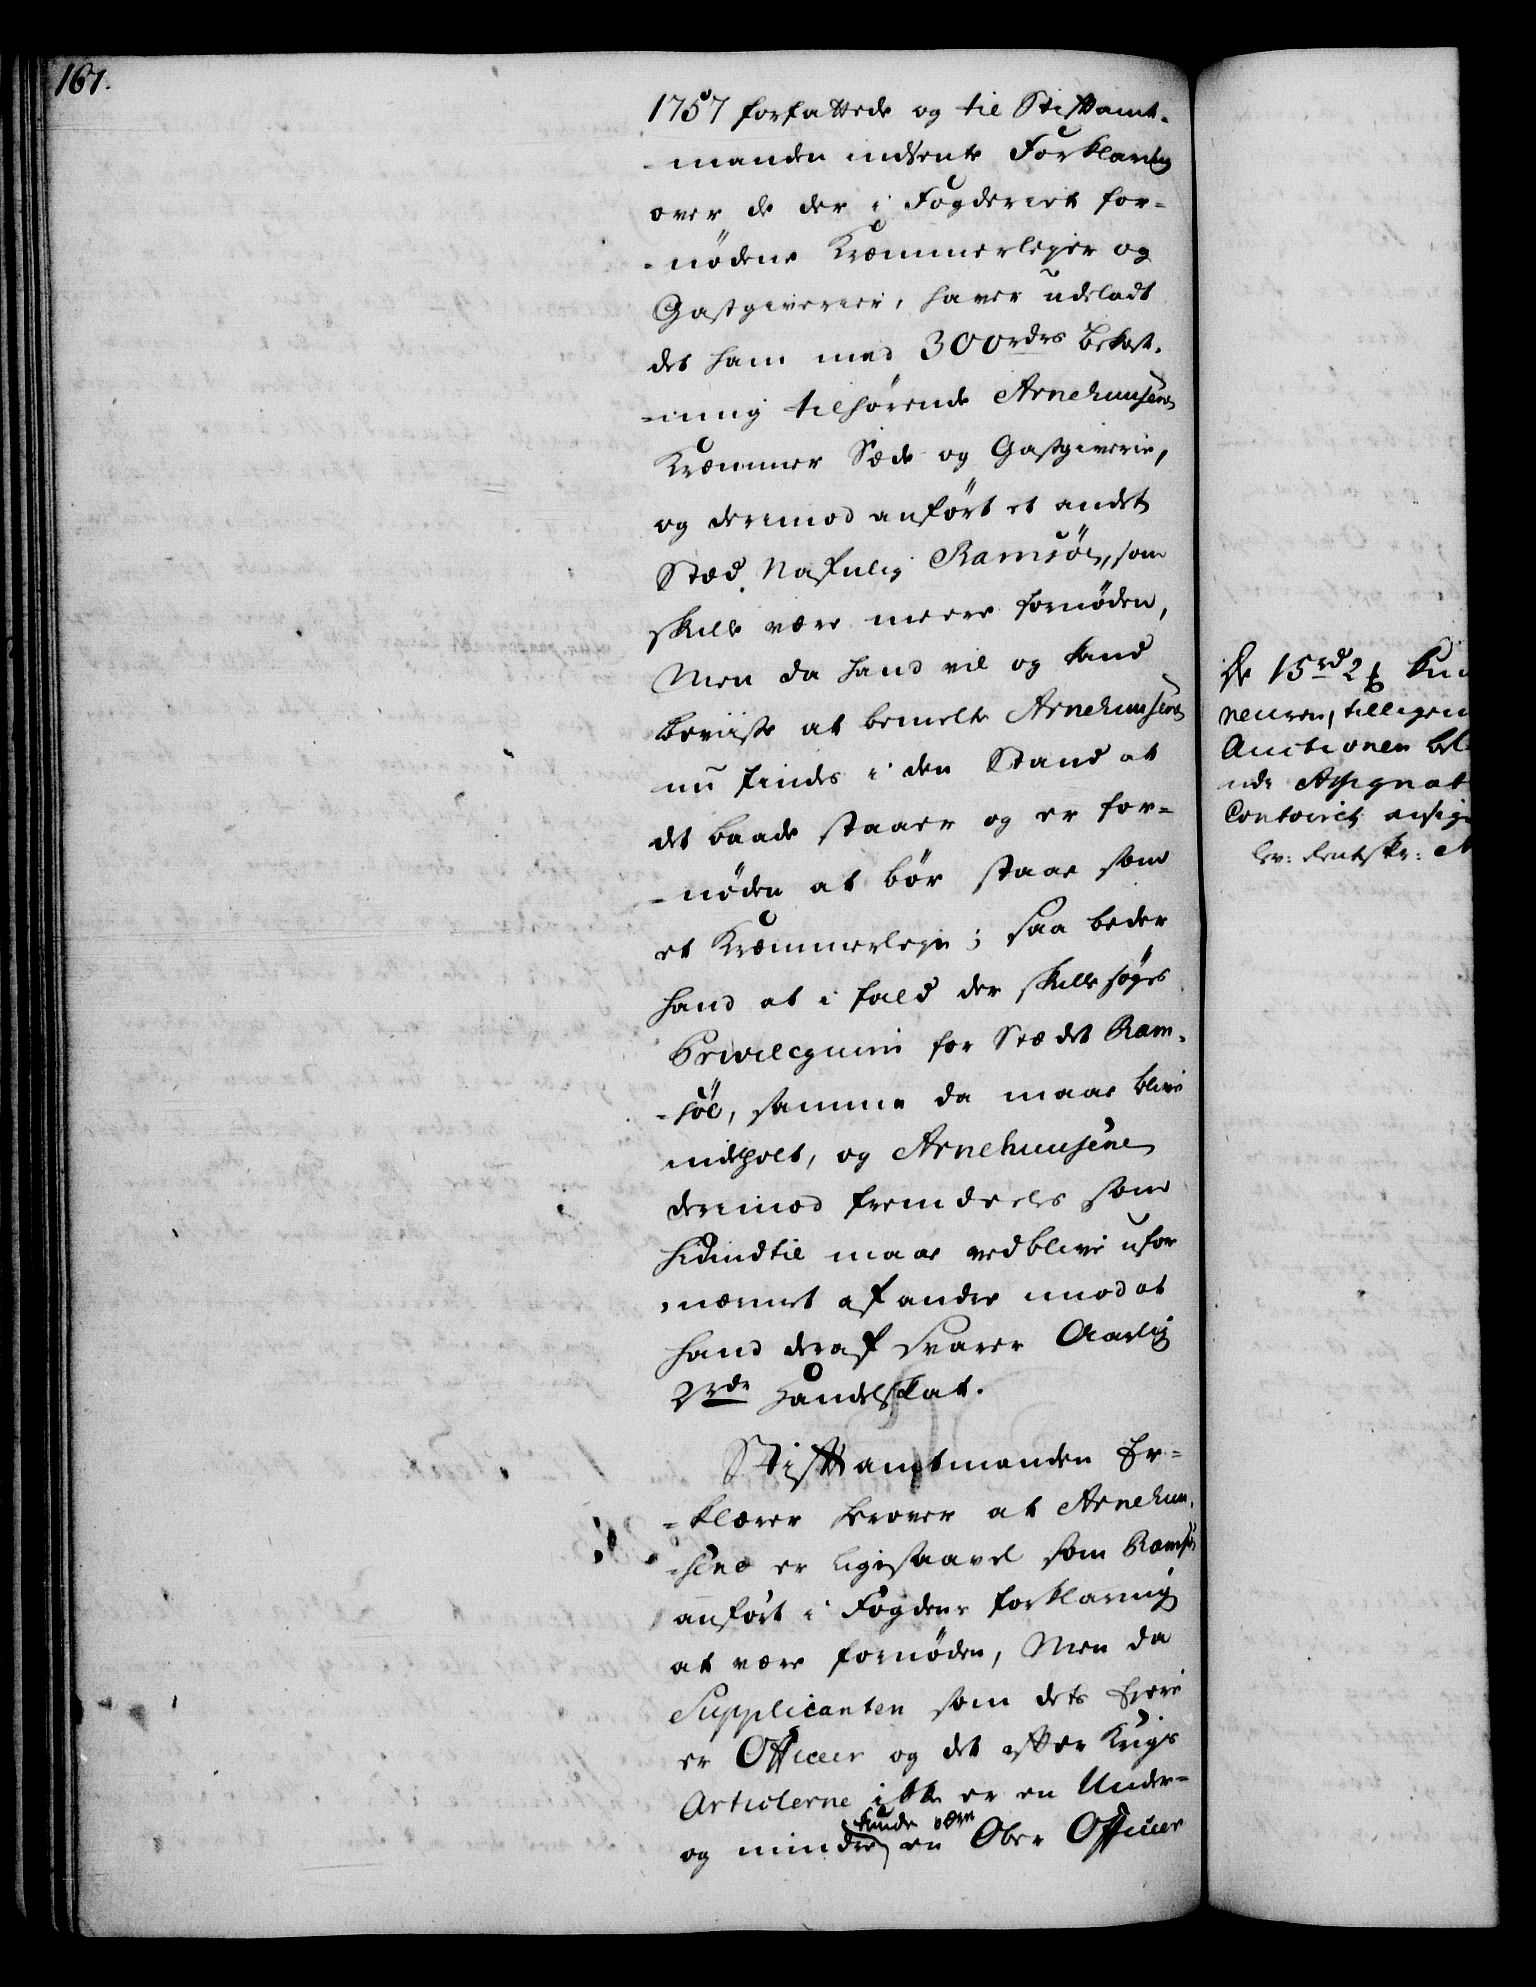 161.
1757 forfattede og til Stiftamt-
-manden indsente Forklaring
over de der i Fogderiet for-
-nödene Kræmmerleyer og
Gastgiverier, haver udeladt
det ham med 300rdrs bekost-
-ning tilhörende Arnehuusene
Kræmmer Sæde og Gastgiverie,
og derimod anfört et andet
Stæd Nafnlig Ramsöe, som
skulle være meere fornöden,
Men da hand vil og kand
beviise at bemelte Arnehuusene
nu findes i den Stand at
det baade staaer og er for-
-nöden at bör staae som
et Kræmmerleye; saa beder
hand at i fald der skulle söges
Privilegium for Stædet Ram-
-söe, samme da maae blive
indholt, og Arnehuusene
derimod fremdeeles som
hidindtil maae vedblive ufor
-nærmet af andre imod at
hand deraf svarer Aarlig
2rdr Handelskat.
Stiftamtmanden Er-
-klærer herover at Arnehuu-
-sene er ligesaavel som Ramsöe
anfört i Fogdens Forklaring
at være fornöden, Men da
Supplicanten som dets Eyere
er Officeer og det efter Krigs
Articlerne ikke er en Under-
og mindre en Ober Officeer
kunde være
de 15rd 2
neuren, tilligem
Auctionen
nde Assignat
Contoiret anviige